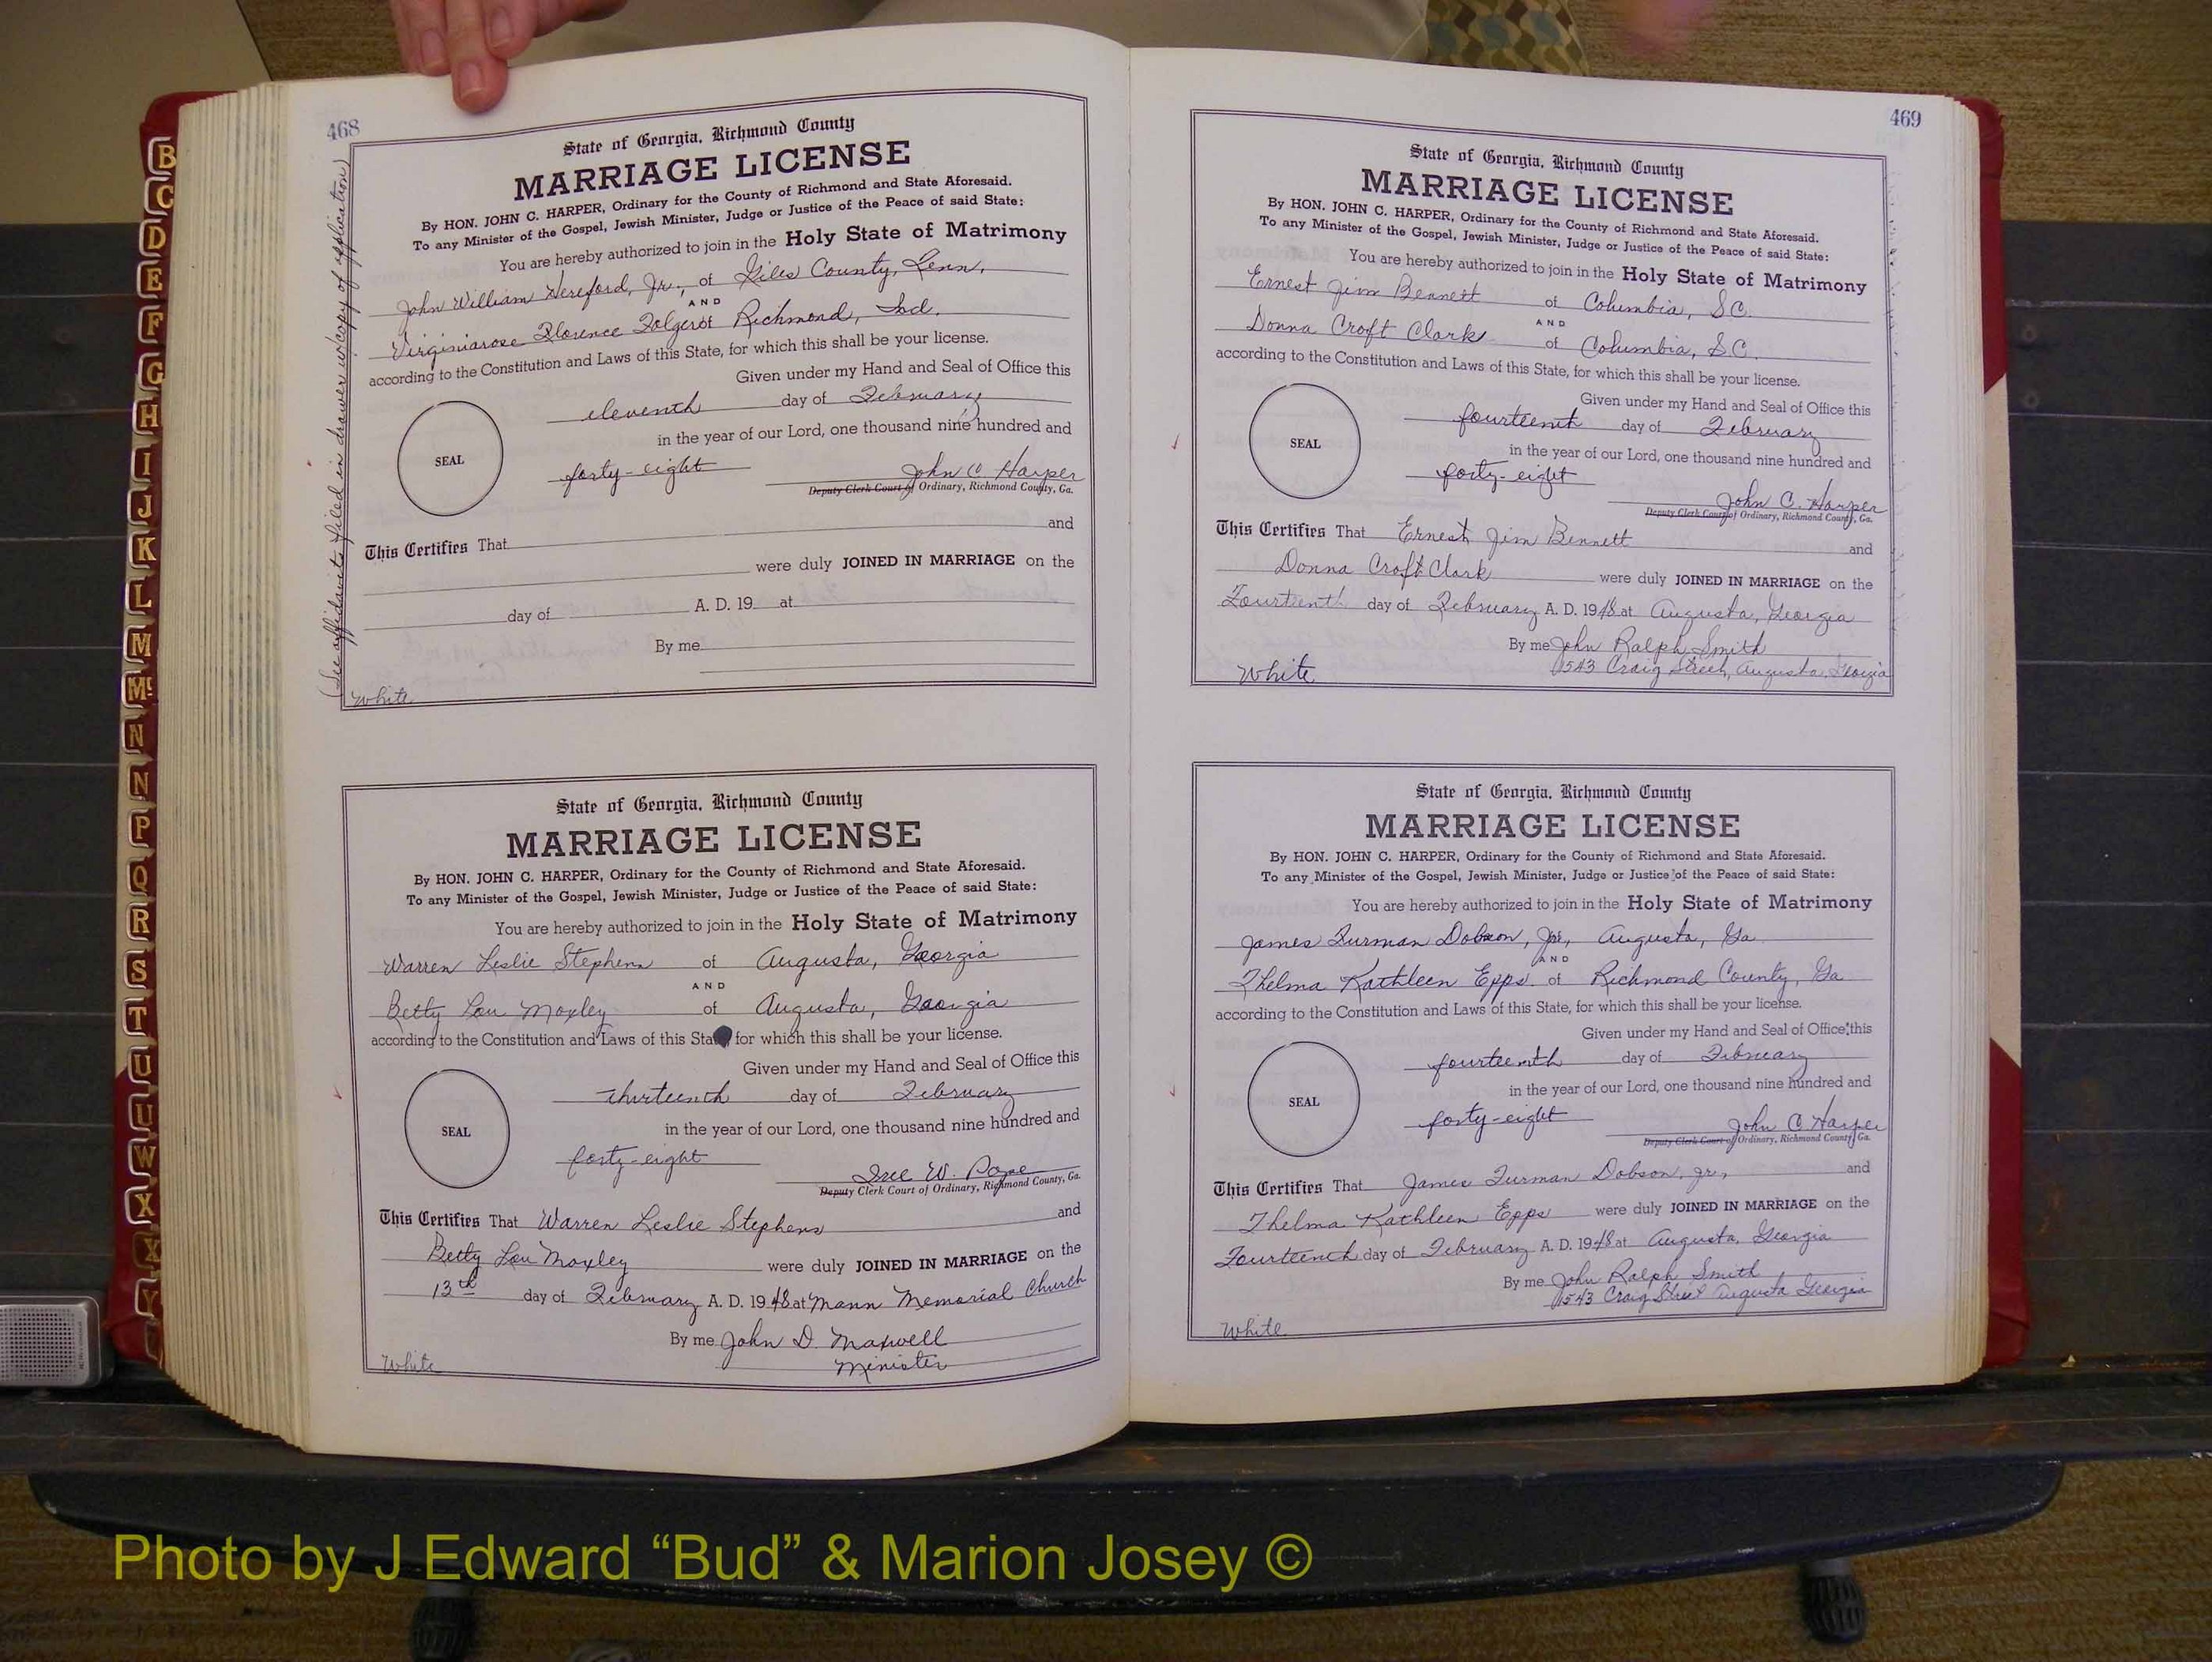 468
(See affidavits filed in drawer w/copy of application)
State of Georgia, Richmond County
MARRIAGE LICENSE
By HON. JOHN C. HARPER, Ordinary for the County of Richmond and State Aforesaid.
To any Minister of the Gospel, Jewish Minister, Judge or Justice of the Peace of said State:
You are hereby authorized to join in the Holy State of Matrimony
John William Hereford, Jr., of Giles County, Tenn.
AND
Virginiarose Florence Folger of Richmond, Ind.
according to the Constitution and Laws of this State, for which this shall be your license.
Given under my Hand and Seal of Office this
eleventh day of February
in the year of our Lord, one thousand nine hundred and
SEAL
forty-eight John C. Harper
Deputy Clerk Court of Ordinary, Richmond County, Ga.
This Certifies That and
were duly JOINED IN MARRIAGE on the
day of A. D. 19 at
By me
White
State of Georgia, Richmond County
MARRIAGE LICENSE
By HON. JOHN C. HARPER, Ordinary for the County of Richmond and State Aforesaid.
To any Minister of the Gospel, Jewish Minister, Judge or Justice of the Peace of said State:
You are hereby authorized to join in the Holy State of Matrimony
Warren Leslie Stephens of Augusta, Georgia
AND
Betty Lou Moxley of Augusta, Georgia
according to the Constitution and Laws of this State for which this shall be your license.
Given under my Hand and Seal of Office this
thirteenth day of February
SEAL
in the year of our Lord, one thousand nine hundred and
forty-eight W. Pope
Deputy Clerk Court of Ordinary, Richmond County, Ga.
This Certifies That Warren Leslie Stephens and
Betty Lou Moxley were duly JOINED IN MARRIAGE on the
13th day of February A. D. 1948 at Mann Memorial Church
By me John D. Maxwell
Minister
White
469
State of Georgia, Richmond County
MARRIAGE LICENSE
By HON. JOHN C. HARPER, Ordinary for the County of Richmond and State Aforesaid.
To any Minister of the Gospel, Jewish Minister, Judge or Justice of the Peace of said State:
You are hereby authorized to join in the Holy State of Matrimony
Ernest Jim Bennett of Columbia, S.C.
AND
Donna Croft Clark of Columbia, S.C.
according to the Constitution and Laws of this State, for which this shall be your license.
Given under my Hand and Seal of Office this
fourteenth day of February
SEAL
in the year of our Lord, one thousand nine hundred and
forty-eight John C. Harper
Deputy Clerk Court of Ordinary, Richmond County, Ga.
This Certifies That Ernest Jim Bennett and
Donna Croft Clark were duly JOINED IN MARRIAGE on the
Fourteenth day of February A. D. 1948 at Augusta, Georgia
By me John Ralph Smith
1543 Craig Street, Augusta, Georgia
White
State of Georgia, Richmond County
MARRIAGE LICENSE
By HON. JOHN C. HARPER, Ordinary for the County of Richmond and State Aforesaid.
To any Minister of the Gospel, Jewish Minister, Judge or Justice of the Peace of said State:
You are hereby authorized to join in the Holy State of Matrimony
James Furman Dobson, Jr., Augusta, Ga.
AND
Thelma Kathleen Epps of Richmond County, Ga
according to the Constitution and Laws of this State, for which this shall be your license.
Given under my Hand and Seal of Office this
fourteenth day of February
in the year of our Lord, one thousand nine hundred and
SEAL
forty-eight John C. Harper
Deputy Clerk Court of Ordinary, Richmond County, Ga.
This Certifies That James Furman Dobson, Jr., and
Thelma Kathleen Epps were duly JOINED IN MARRIAGE on the
Fourteenth day of February A. D. 1948 at Augusta, Georgia
By me John Ralph Smith
1543 Craig Street Augusta Georgia
White
B
C
D
E
F
G
H
I
J
K
L
M
Mc
N
N
P
Q
R
S
T
U
U
W
X
X
Y
Photo by J Edward “Bud” & Marion Josey ©